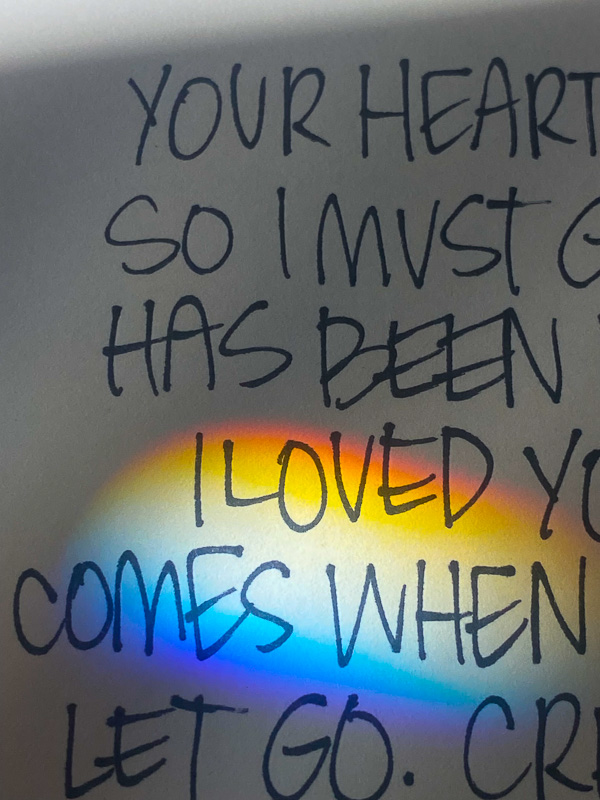 YOUR HEART
SO I MUST G
HAS BEEN
I LOVED YO
COMES WHEN
LET GO. CRE